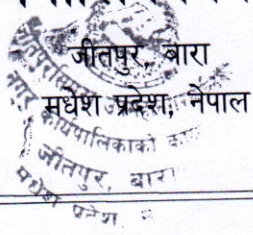 जीतपुर, बारा
मधेश प्रदेश, नेपाल
नगर कार्यपालिकाको
जीतपुर, बारा
मधेश प्रदेश,